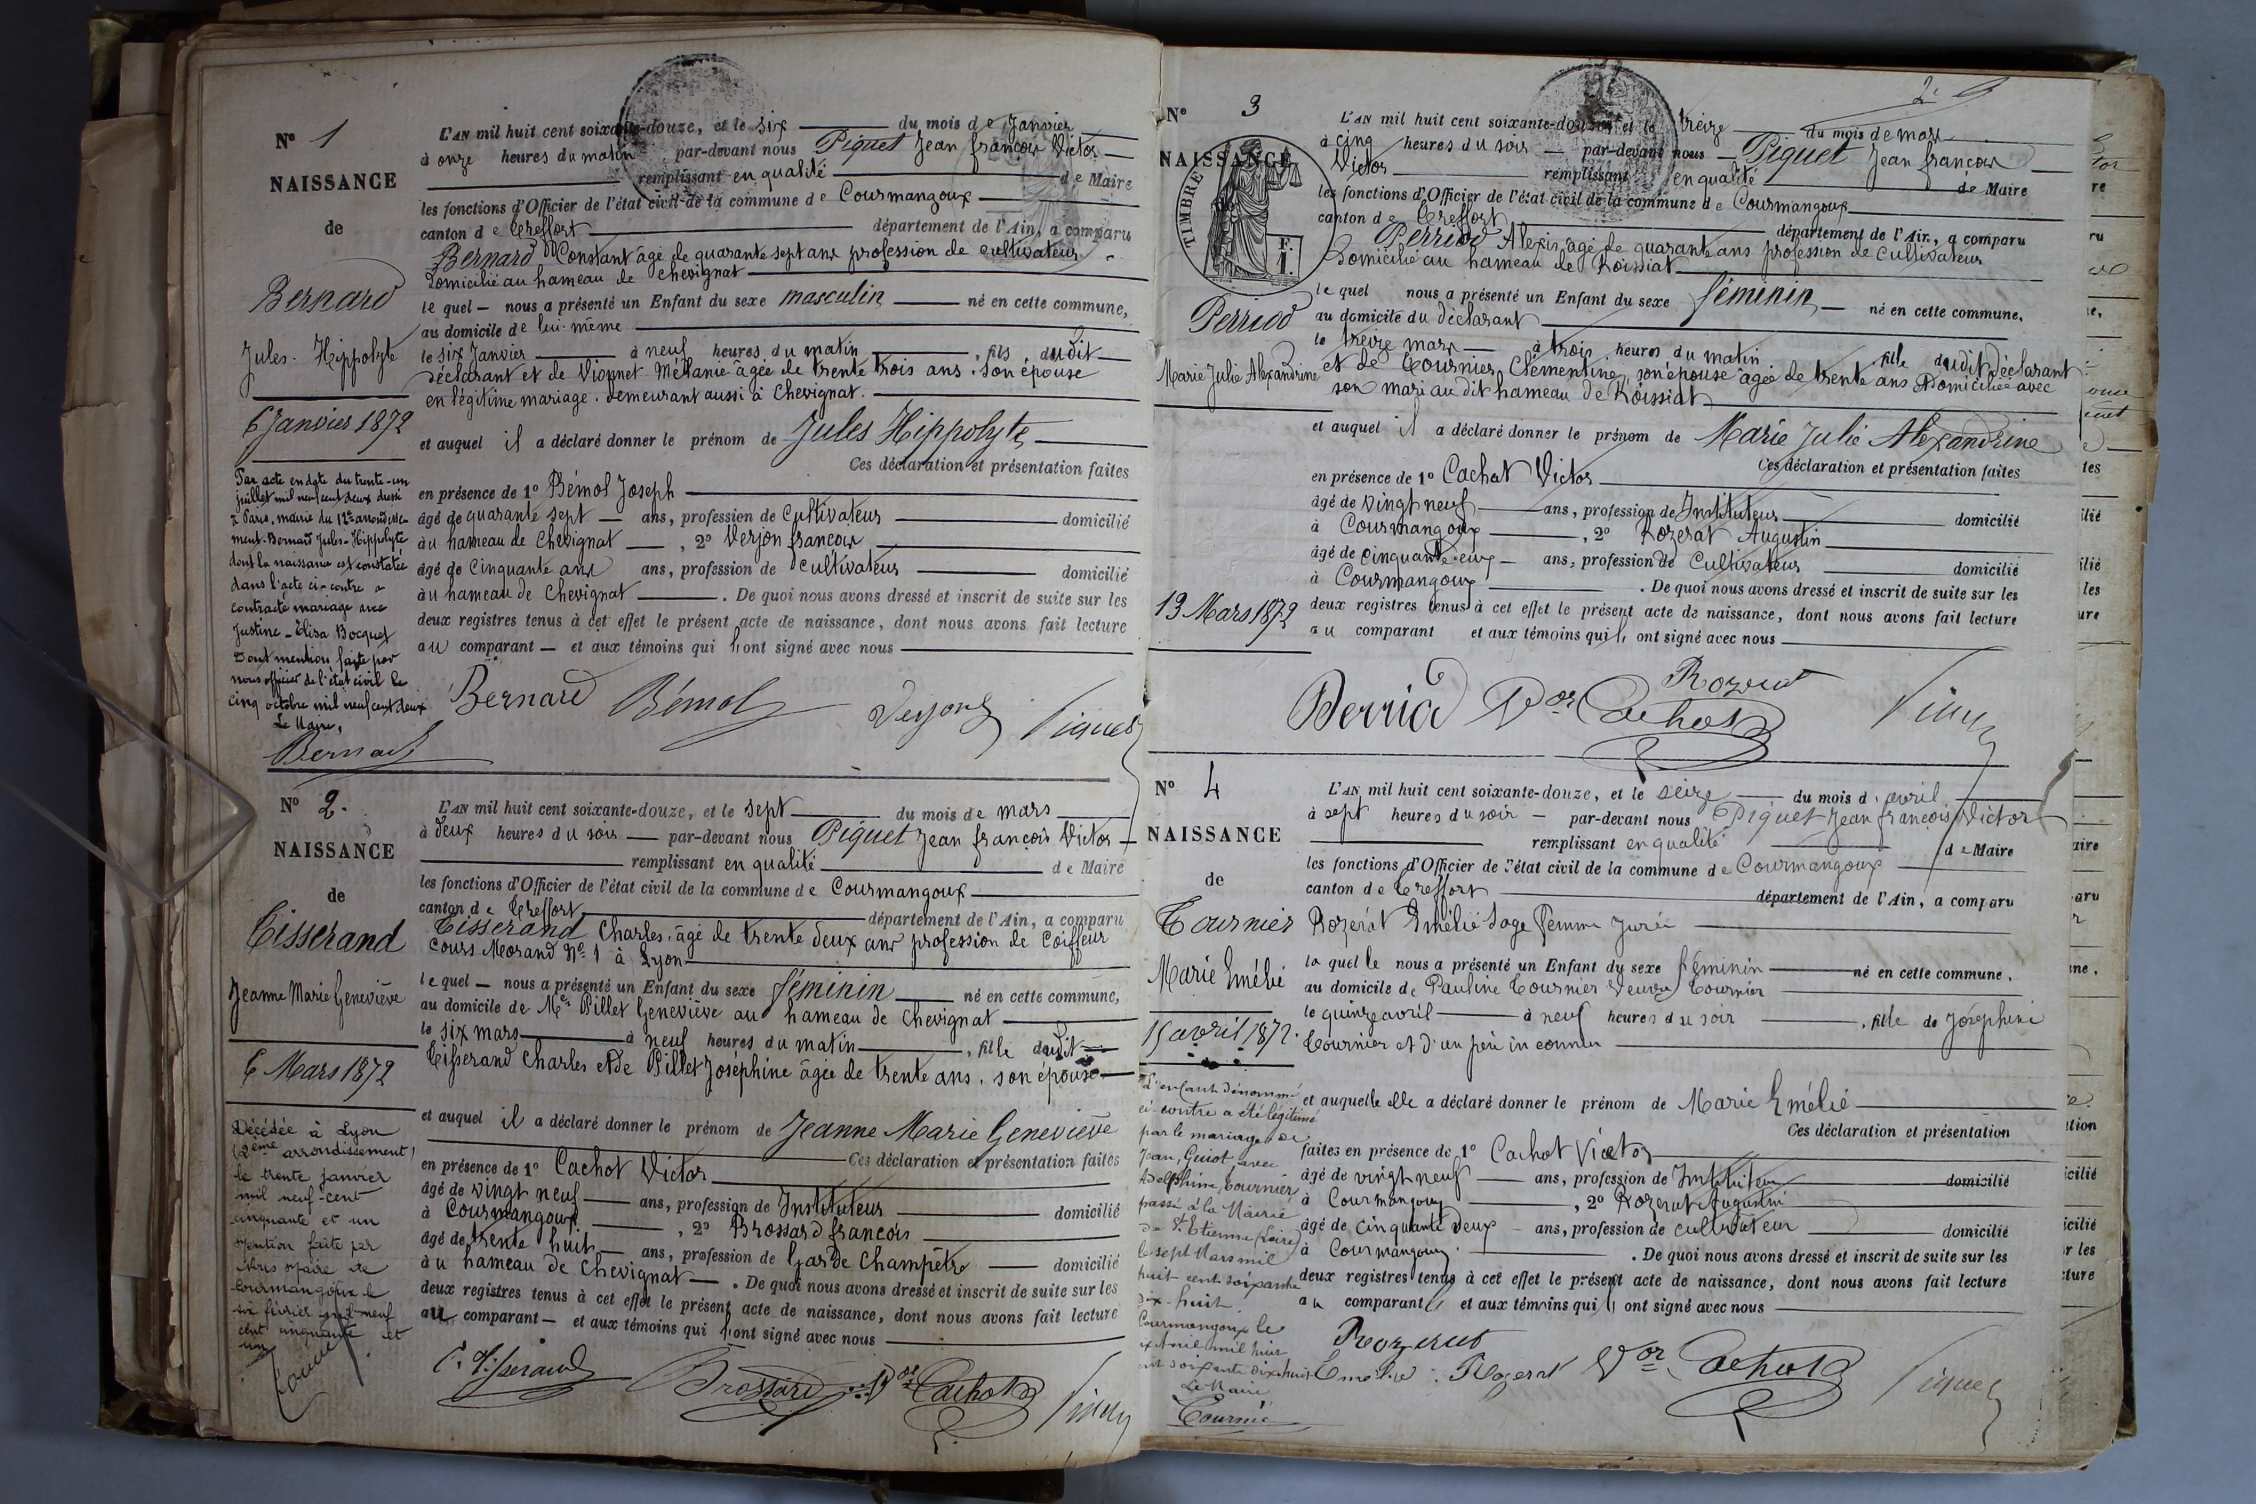 N° 1
NAISSANCE
de
Bernard
Jules-Hippolyte
6 Janvier 1872
Par acte en date du trente-un
juillet mil neuf cent deux dressé
à Paris, mairie du 12e arrondisse-
ment. Bernard Jules-Hippolyte
dont la naissance est constatée
dans l'acte ci-contre a
contracté mariage avec
Justine-Elisa Bocquet
Dont mention faite par
nous officier de l'état civil le
cinq octobre mil neuf cent deux
Le Maire,
Bernard
L'AN mil huit cent soixante-douze, et le six du mois de Janvier
à onze heures du matin par-devant nous Piquet Jean françois Victor
remplissant en qualité de Maire
les fonctions d'Officier de l'état civil de la commune de Courmangoux
canton de Treffort département de l'Ain, a comparu
Bernard Constant âgé de quarante sept ans profession de cultivateur
Domicilié au hameau de Chevignat
lequel nous a présenté un Enfant du sexe masculin né en cette commune,
au domicile de lui-même
le six Janvier à neuf heures du matin, fils dudit
déclarant et de Vionnet Mélanie âgée de trente trois ans. Son épouse
en légitime mariage. demeurant aussi à Chevignat.
et auquel il a déclaré donner le prénom de Jules Hippolyte
Ces déclaration et présentation faites
en présence de 1° Bémol Joseph
âgé de quarante sept ans, profession de Cultivateur domicilié
au hameau de Chevignat, 2° Verjon françois
âgé de Cinquante ans ans, profession de cultivateur domicilié
au hameau de Chevignat. De quoi nous avons dressé et inscrit de suite sur les
deux registres tenus à cet effet le présent acte de naissance, dont nous avons fait lecture
au comparant et aux témoins qui l'ont signé avec nous
Bernard Bémol Verjon Piquet
N° 2.
NAISSANCE
de
Tisserand
Jeanne Marie Geneviève
6 Mars 1872
Décédée à Lyon
(2ème arrondissement)
le trente janvier
mil neuf-cent
cinquante et un
Mention faite par
Nous Maire de
Courmangoux le
février mil neuf
cent cinquante et
un
L'AN mil huit cent soixante-douze, et le sept du mois de mars
à deux heures du soir par-devant nous Piquet Jean françois Victor
remplissant en qualité de Maire
les fonctions d'Officier de l'état civil de la commune de Courmangoux
canton de Treffort département de l'Ain, a comparu
Tisserand Charles, âgé de trente deux ans profession de Coiffeur
Cours Morand N° 1 à Lyon
lequel nous a présenté un Enfant du sexe féminin né en cette commune,
au domicile de Me Pillet Geneviève au hameau de Chevignat
le six mars à neuf heures du matin, fille dudit
Tisserand Charles et de Pillet Joséphine âgée de trente ans. son épouse
et auquel il a déclaré donner le prénom de Jeanne Marie Geneviève
Ces déclaration et présentation faites
en présence de 1° Cachot Victor
âgé de vingt neuf ans, profession de Instituteur domicilié
à Courmangoux, 2° Brossard françois
âgé de trente huit ans, profession de Garde Champêtre domicilié
au hameau de Chevignat. De quoi nous avons dressé et inscrit de suite sur les
deux registres tenus à cet effet le présent acte de naissance, dont nous avons fait lecture
au comparant et aux témoins qui l'ont signé avec nous
C. Tisserand Brossard Vor Cachot Piquet
2e
N° 3
NAISSANCE
TIMBRE
F.
1.
Perriod
Marie Julie Alexandrine
13 Mars 1872
L'AN mil huit cent soixante-douze, et le treize du mois de mars
à cinq heures du soir par-devant nous Piquet Jean françois
Victor remplissant en qualité de Maire
les fonctions d'Officier de l'état civil de la commune de Courmangoux
canton de Treffort département de l'Ain, a comparu
Perriod Alexis, âgé de quarante ans profession de Cultivateur
Domicilié au hameau de Roissiat
lequel nous a présenté un Enfant du sexe féminin né en cette commune,
au domicile du déclarant
le treize mars à trois heures du matin, fille dudit déclarant
et de Tournier Clémentine, son épouse âgée de trente ans Domiciliée avec
son mari au dit hameau de Roissiat
et auquel il a déclaré donner le prénom de Marie Julie Alexandrine
Ces déclaration et présentation faites
en présence de 1° Cachot Victor
âgé de vingt neuf ans, profession de Instituteur domicilié
à Courmangoux, 2° Rozerat Augustin
âgé de cinquante-eux ans, profession de Cultivateur domicilié
à Courmangoux. De quoi nous avons dressé et inscrit de suite sur les
deux registres tenus à cet effet le présent acte de naissance, dont nous avons fait lecture
au comparant et aux témoins qui l'ont signé avec nous
Rozerat
Perriod Vor Cachot Piquet
N° 4
NAISSANCE
de
Tournier
Marie Emélie
15 avril 1872.
L'enfant dénommé
ci-contre a été légitimé
par le mariage de
Jean, Guiot, avec
Delphine Tournier
passé à la Mairie
de St Etienne (Loire)
le sept Mars mil
huit cent soixante
dix-huit.
Courmangoux le
Avril mil huit
cent soixante dix-huit
Le Maire
Tournié
L'AN mil huit cent soixante-douze, et le seize du mois d'avril
à sept heures du soir par-devant nous Piquet Jean françois Victor
remplissant en qualité de Maire
les fonctions d'Officier de l'état civil de la commune de Courmangoux
canton de Treffort département de l'Ain, a comparu
Rozerat Emélie Sage femme Jurée
laquelle nous a présenté un Enfant du sexe féminin né en cette commune.
au domicile de Pauline Tournier Veuve Tournier
le quinze avril à neuf heures du soir, fille de Joséphine
Tournier et d'un père inconnu
et auquelle elle a déclaré donner le prénom de Marie Emélie
Ces déclaration et présentation
faites en présence de 1° Cachot Victor
âgé de vingt neuf ans, profession de Instituteur domicilié
à Courmangoux, 2° Rozerat Augustin
âgé de cinquante deux ans, profession de cultivateur domicilié
à Courmangoux. De quoi nous avons dressé et inscrit de suite sur les
deux registres tenus à cet effet le présent acte de naissance, dont nous avons fait lecture
au comparant et aux témoins qui l'ont signé avec nous
Rozerat
Emélie Rozerat Vor Cachot Piquet